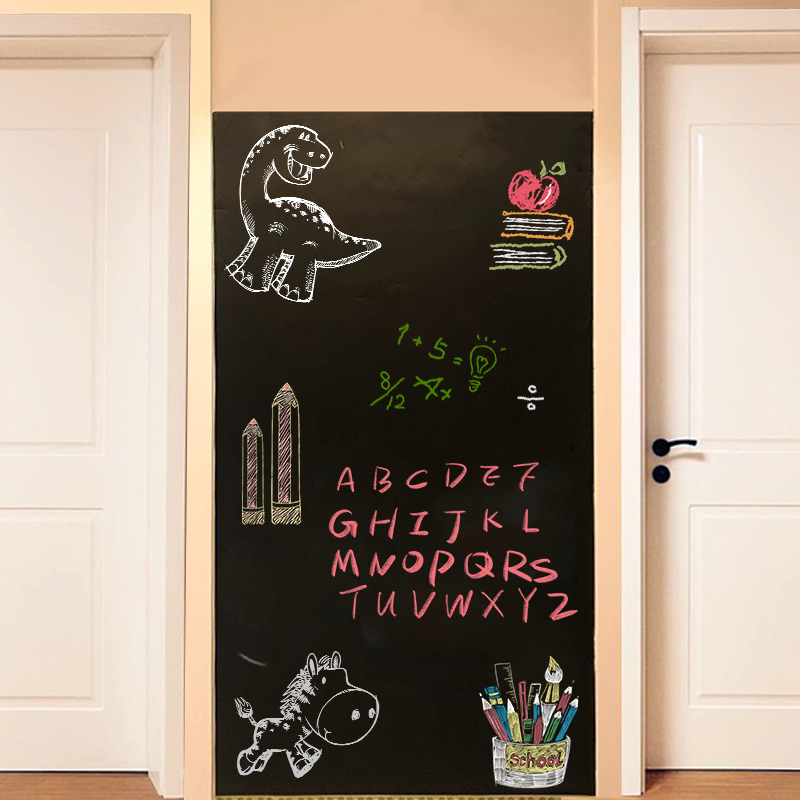 1 + 5 =
8/12
÷
A B C D E F
G H I J K L
M N O P Q R S
T U V W X Y Z
School